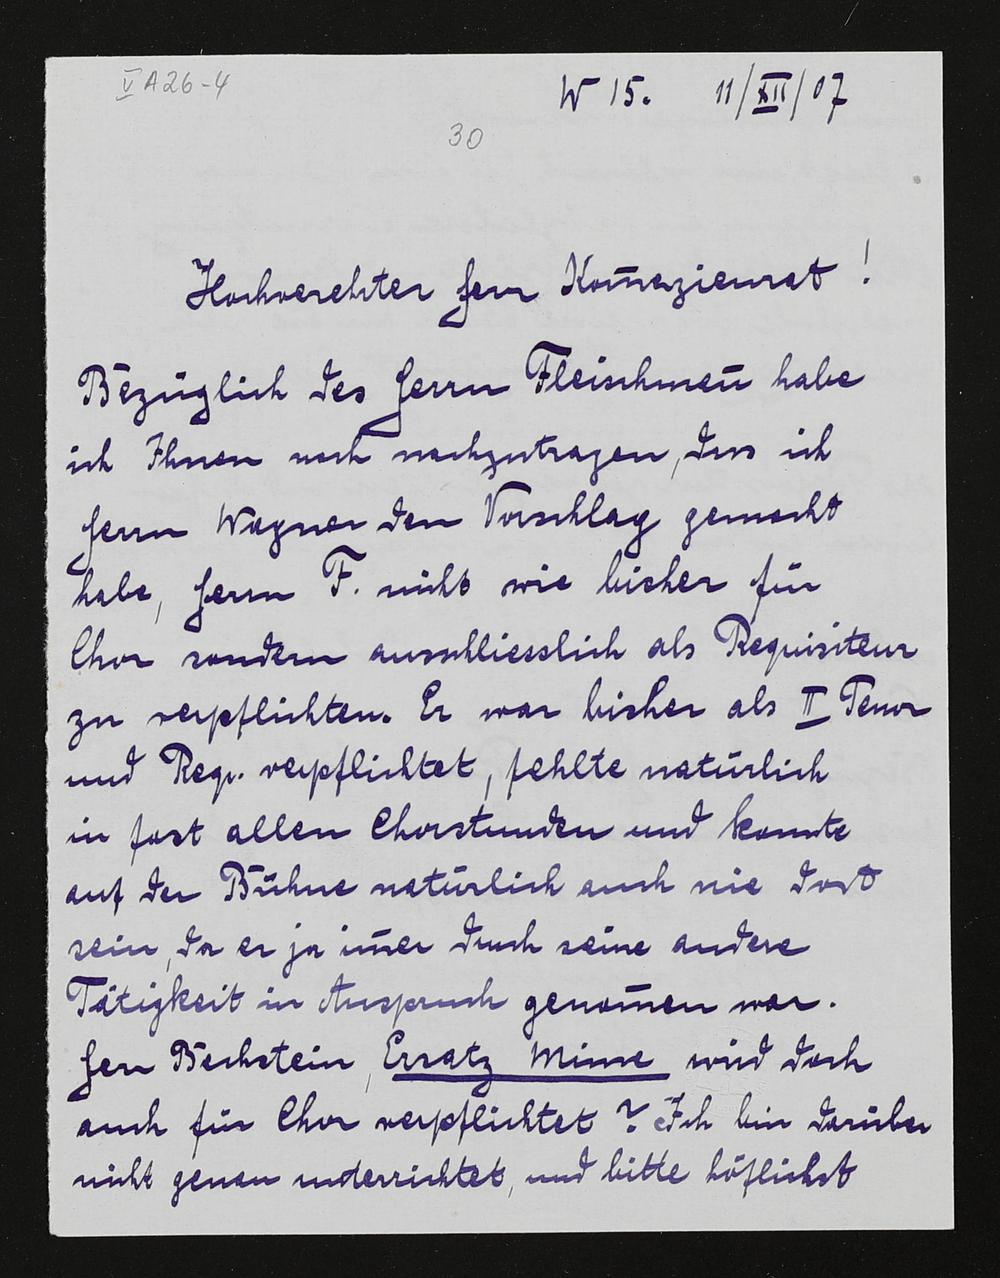 V A 26-4
W 15. 11/XII/07
30
Hochverehrter Herr Kom̄erzienrat!
Bezüglich des Herrn Fleischman̄ habe
ich Ihnen noch nachzutragen, dass ich
Herrn Wagner den Vorschlag gemacht
habe, Herrn F. nicht wie bisher für
Chor sondern ausschliesslich als Requisiteur
zu verpflichten. Er war bisher als II Tenor
und Requ. verpflichtet, fehlte natürlich
in fast allen Chorstunden und konnte
auf der Bühne natürlich auch nie dort
sein, da er ja im̄er durch seine andere
Tätigkeit in Anspruch genom̄en war.
Herr Bechstein, Ersatz Mime wird doch
auch für Chor verpflichtet? Ich bin darüber
nicht genau unterrichtet, und bitte höflichst